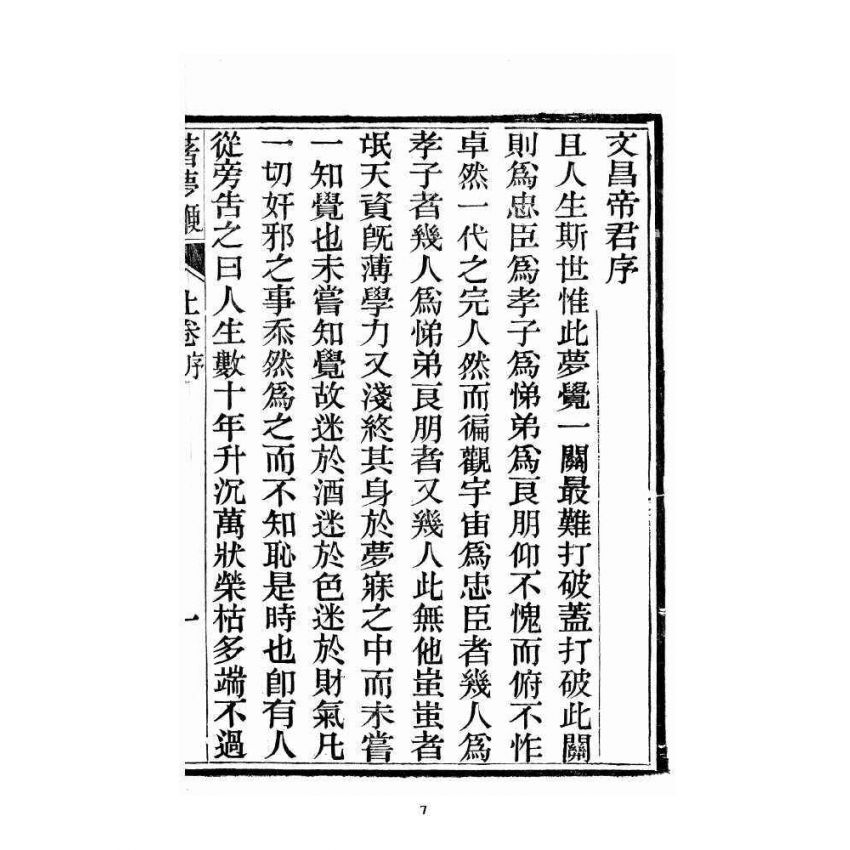 文昌帝君序
且人生斯世惟此夢覺一關最難打破蓋打破此關
則爲忠臣爲孝子爲悌弟爲良朋仰不愧而俯不怍
卓然一代之完人然而徧觀宇宙爲忠臣者幾人爲
孝子者幾人爲悌弟良朋者又幾人此無他蚩蚩者
氓天資旣薄學力又淺終其身於夢寐之中而未嘗
一知覺也未嘗知覺故迷於酒迷於色迷於財氣凡
一切奸邪之事忝然爲之而不知恥是時也卽有人
從旁告之曰人生數十年升沉萬狀榮枯多端不過
夢
上卷序
一
7